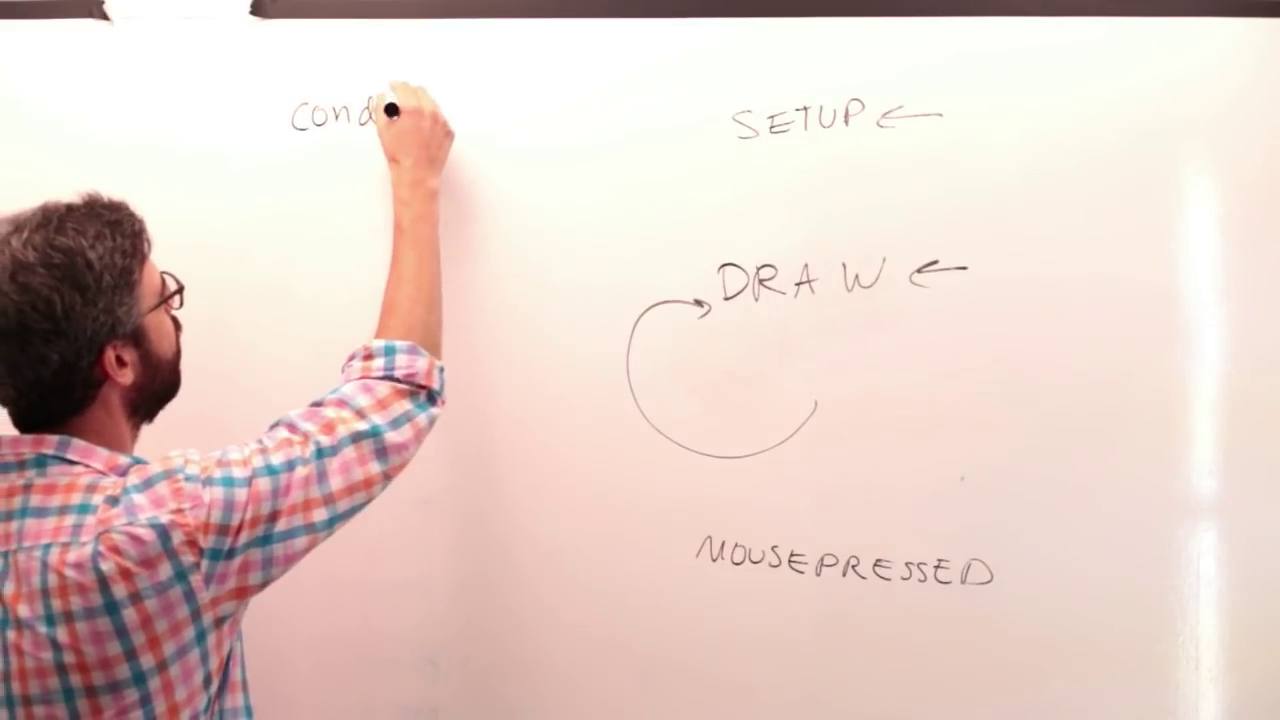 cond
SETUP
DRAW
MOUSEPRESSED